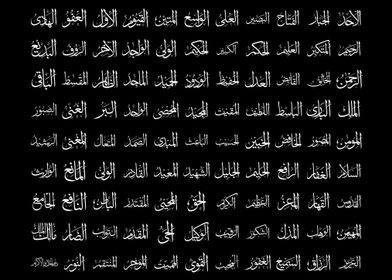 الأحد الجبار الفتاح البصير العلي الواسع المتين القيوم الأول العفو الهادي
الرحيم المتكبر العليم الحكم الكبير الحكيم الولي الواجد الآخر الرؤوف البديع
الرحمن الخالق القابض العدل الحفيظ الودود الحميد الماجد الظاهر المقسط الباقي
الملك البارئ الباسط اللطيف المقيت المجيد المحصي الواحد البر الغني الصبور
المؤمن المصور الخافض الخبير الحسيب الباعث المبدئ الصمد المتعال المغني الرشيد
السلام الغفار الرافع الحليم الجليل الشهيد المعيد القادر الوالي المانع الوارث
القدوس القهار المعز العظيم الكريم الحق المحيي المقتدر الباطن النافع الجامع
المهيمن الوهاب المذل الشكور الرقيب الوكيل الحي المقدم التواب الضار مالك الملك
العزيز الرزاق السميع الغفور المجيب القوي المميت المؤخر المنتقم النور ذو الجلال والإكرام